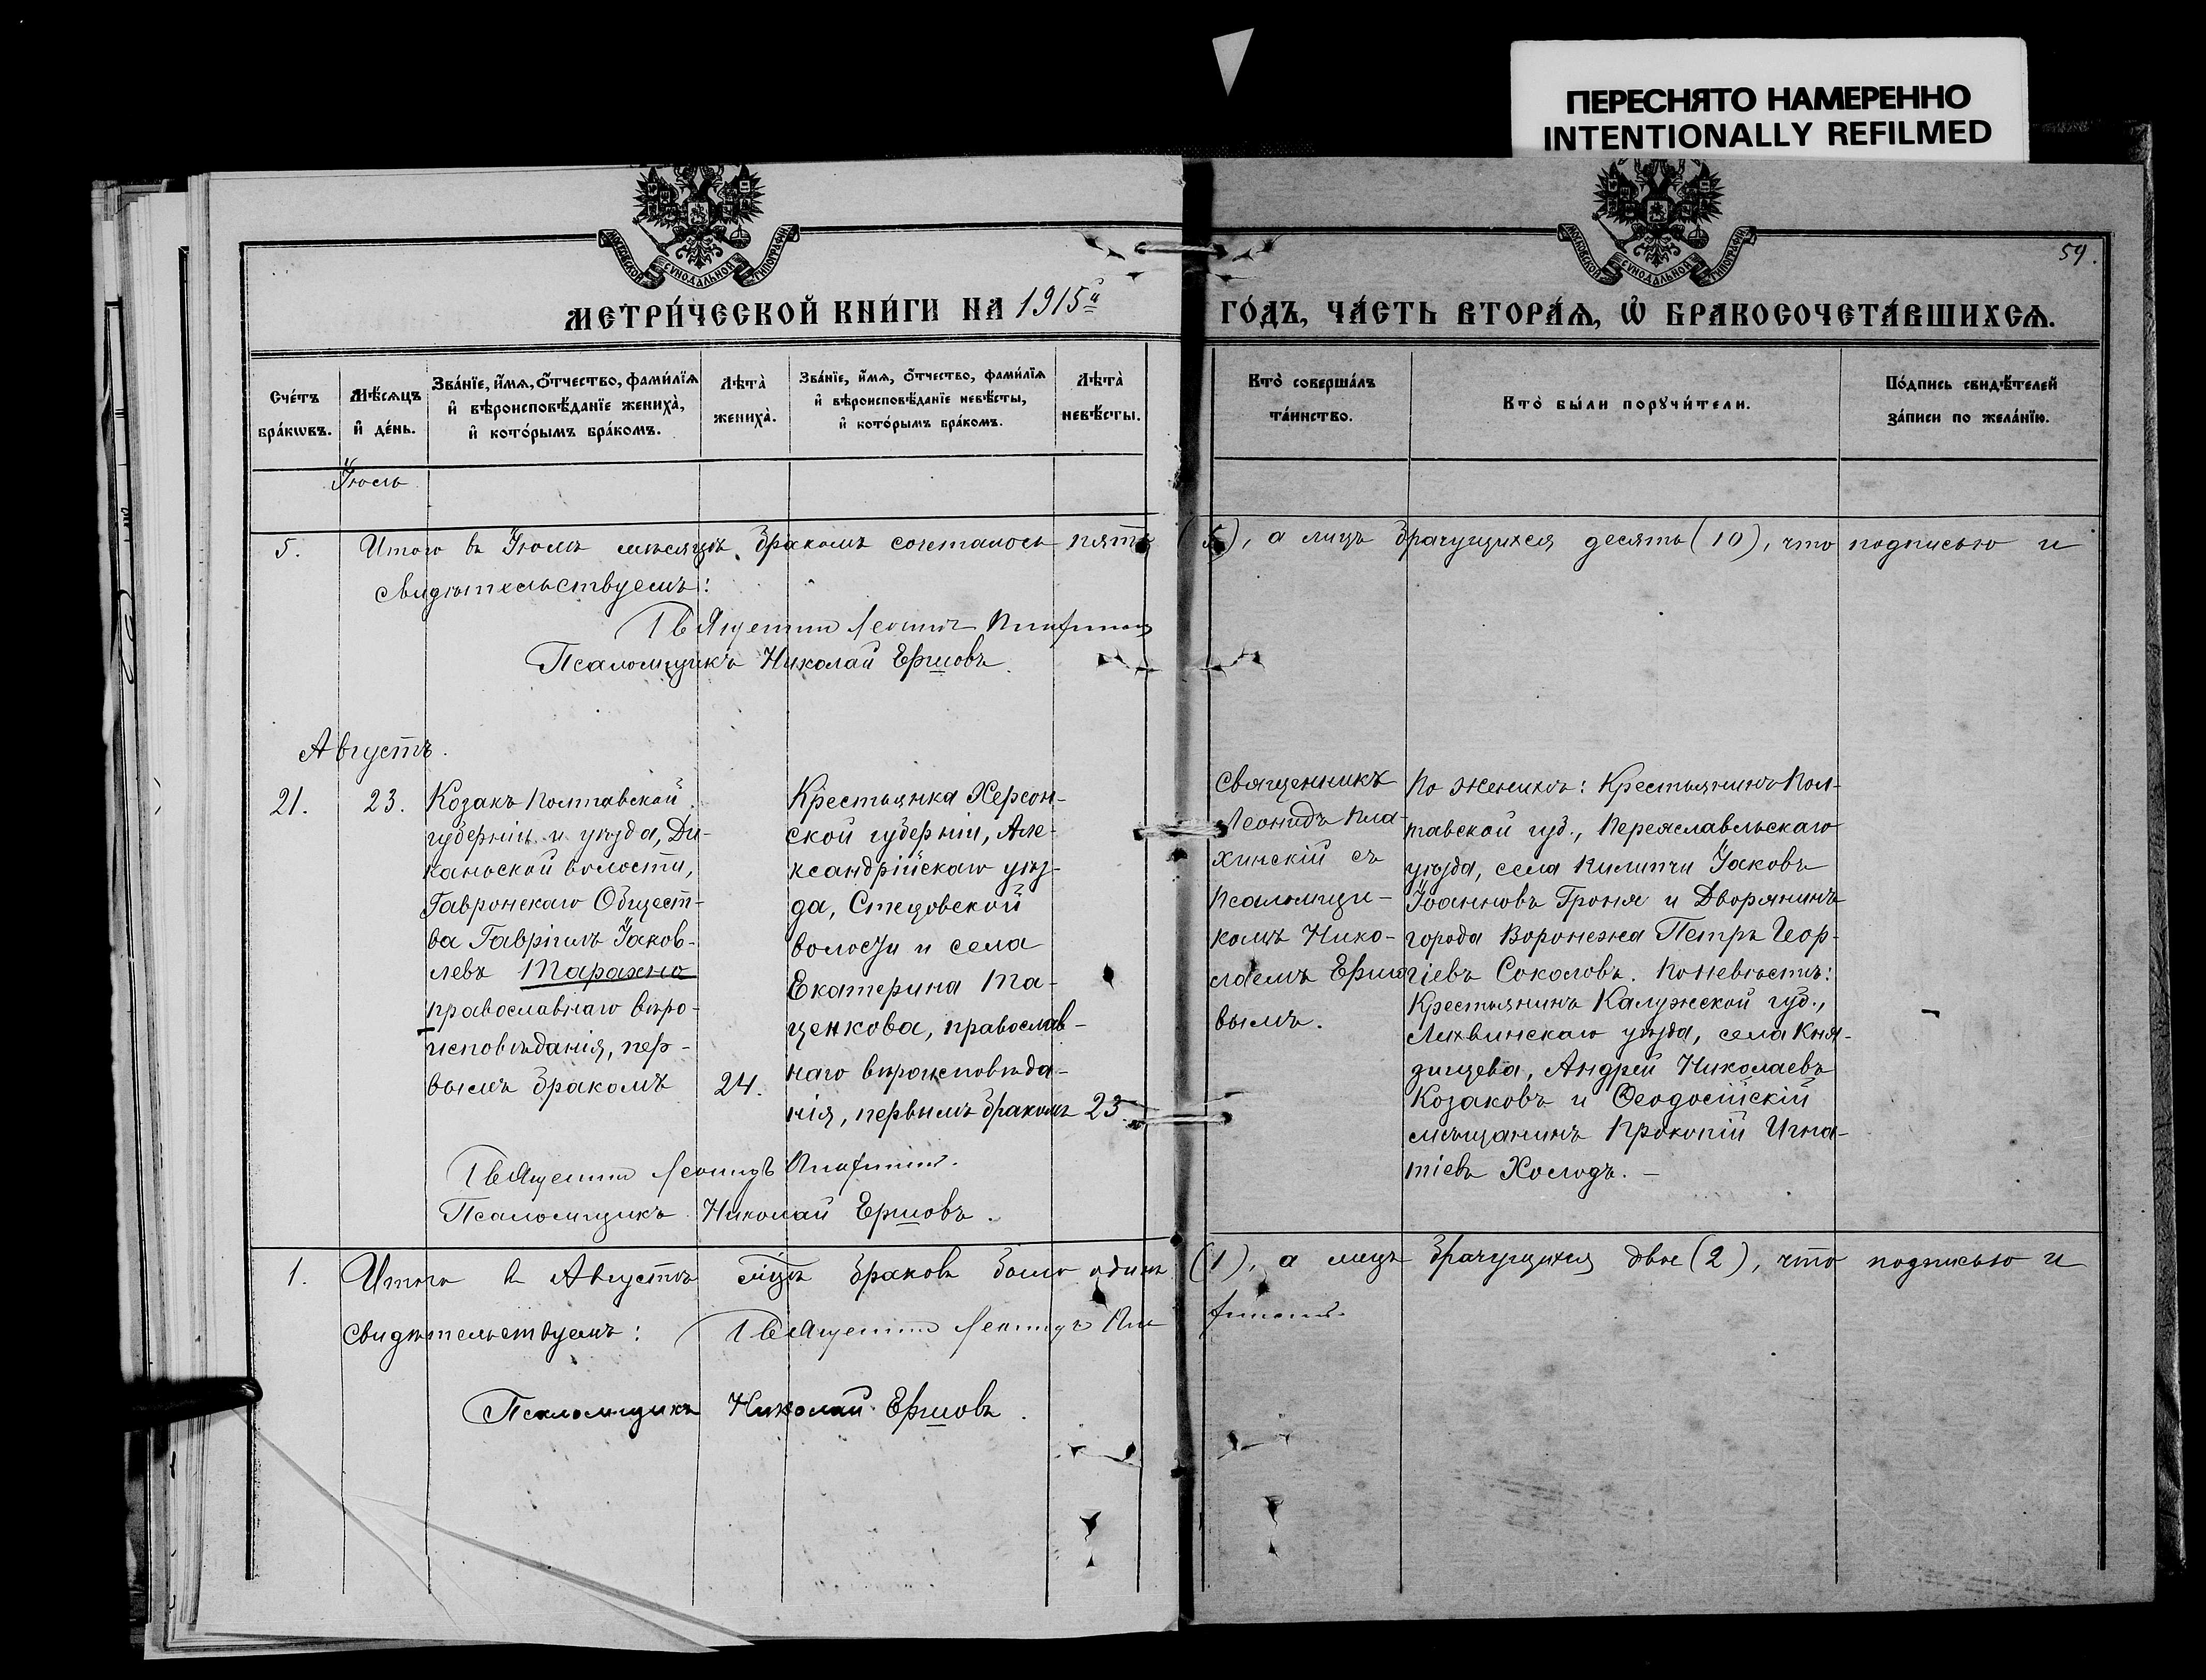 ПЕРЕСНЯТО НАМЕРЕННО
INTENTIONALLY REFILMED
МОСКОВСКОЙ СѴНОДАЛЬНОЙ ТИПОГРАФІИ
МОСКОВСКОЙ СѴНОДАЛЬНОЙ ТИПОГРАФІИ
59.
МЕТРИ́ЧЕСКОЙ КНИ́ГИ НА 1915й
ГО́ДЪ, ЧА́СТЬ ВТОРА́Ѧ, Ѽ БРАКОСОЧЕТА́ВШИХСѦ.
Сче́тъ бра́кѡвъ.
Мѣ́сѧцъ и҆ де́нь.
Зва́нїе, и҆́мѧ, ѻ҆́тчество, фами́лїѧ и҆ вѣроисповѣ́данїе жениха̀, и҆ кото́рымъ бра́комъ.
Лѣта̀ жениха̀.
Зва́нїе, и҆́мѧ, ѻ҆́тчество, фами́лїѧ и҆ вѣроисповѣ́данїе невѣ́сты, и҆ кото́рымъ бра́комъ.
Лѣта̀ невѣ́сты.
Кто̀ соверша́лъ та́инство.
Кто̀ бы́ли порꙋчи́тели.
По́дпись свидѣ́телей за́писи по жела́нїю.
Іюль
5. Итого въ Іюлѣ мѣсяцѣ бракомъ сочеталось пять (5), а лицъ брачущихся десять (10), что подписью и
свидѣтельствуемъ:
Священникъ Леонидъ Плахинскій
Псаломщикъ Николай Ершовъ.
Августъ.
21.
23.
Козакъ Полтавской
губерніи и уѣзда, Ди-
каньской волости,
Гавронскаго Общест-
ва Гавріилъ Іаков-
левъ Тарахно
православнаго вѣро-
исповѣданія, пер-
вымъ бракомъ
24.
Крестьянка Херсон-
ской губерніи, Але-
ксандрійскаго уѣз-
да, Стецовской
волости и села
Екатерина Та-
ценкова, православ-
наго вѣроисповѣда-
нія, первымъ бракомъ
23.
Священникъ
Леонидъ Пла-
хинскій съ
псаломщи-
комъ Нико-
лаемъ Ершо-
вымъ.
По женихѣ: Крестьянинъ Пол-
тавской губ., Переяславльскаго
уѣзда, села Пилипчи Іаковъ
Іоанновъ Гроня и Дворянинъ
города Воронежа Петръ Геор-
гіевъ Соколовъ. По невѣстѣ:
Крестьянинъ Калужской губ.,
Лихвинскаго уѣзда, села Кня-
зищева, Андрей Николаевъ
Козаковъ и Ѳеодосійскій
мѣщанинъ Прокопій Игна-
тіевъ Холодъ. —
Священникъ Леонидъ Плахинскій.
Псаломщикъ Николай Ершовъ.
1. Итого въ Августѣ мѣцѣ браковъ было одинъ (1), а лицъ брачущихся двое (2), что подписью и
свидѣтельствуемъ: Священникъ Леонидъ Плахинскій.
Псаломщикъ Николай Ершовъ.